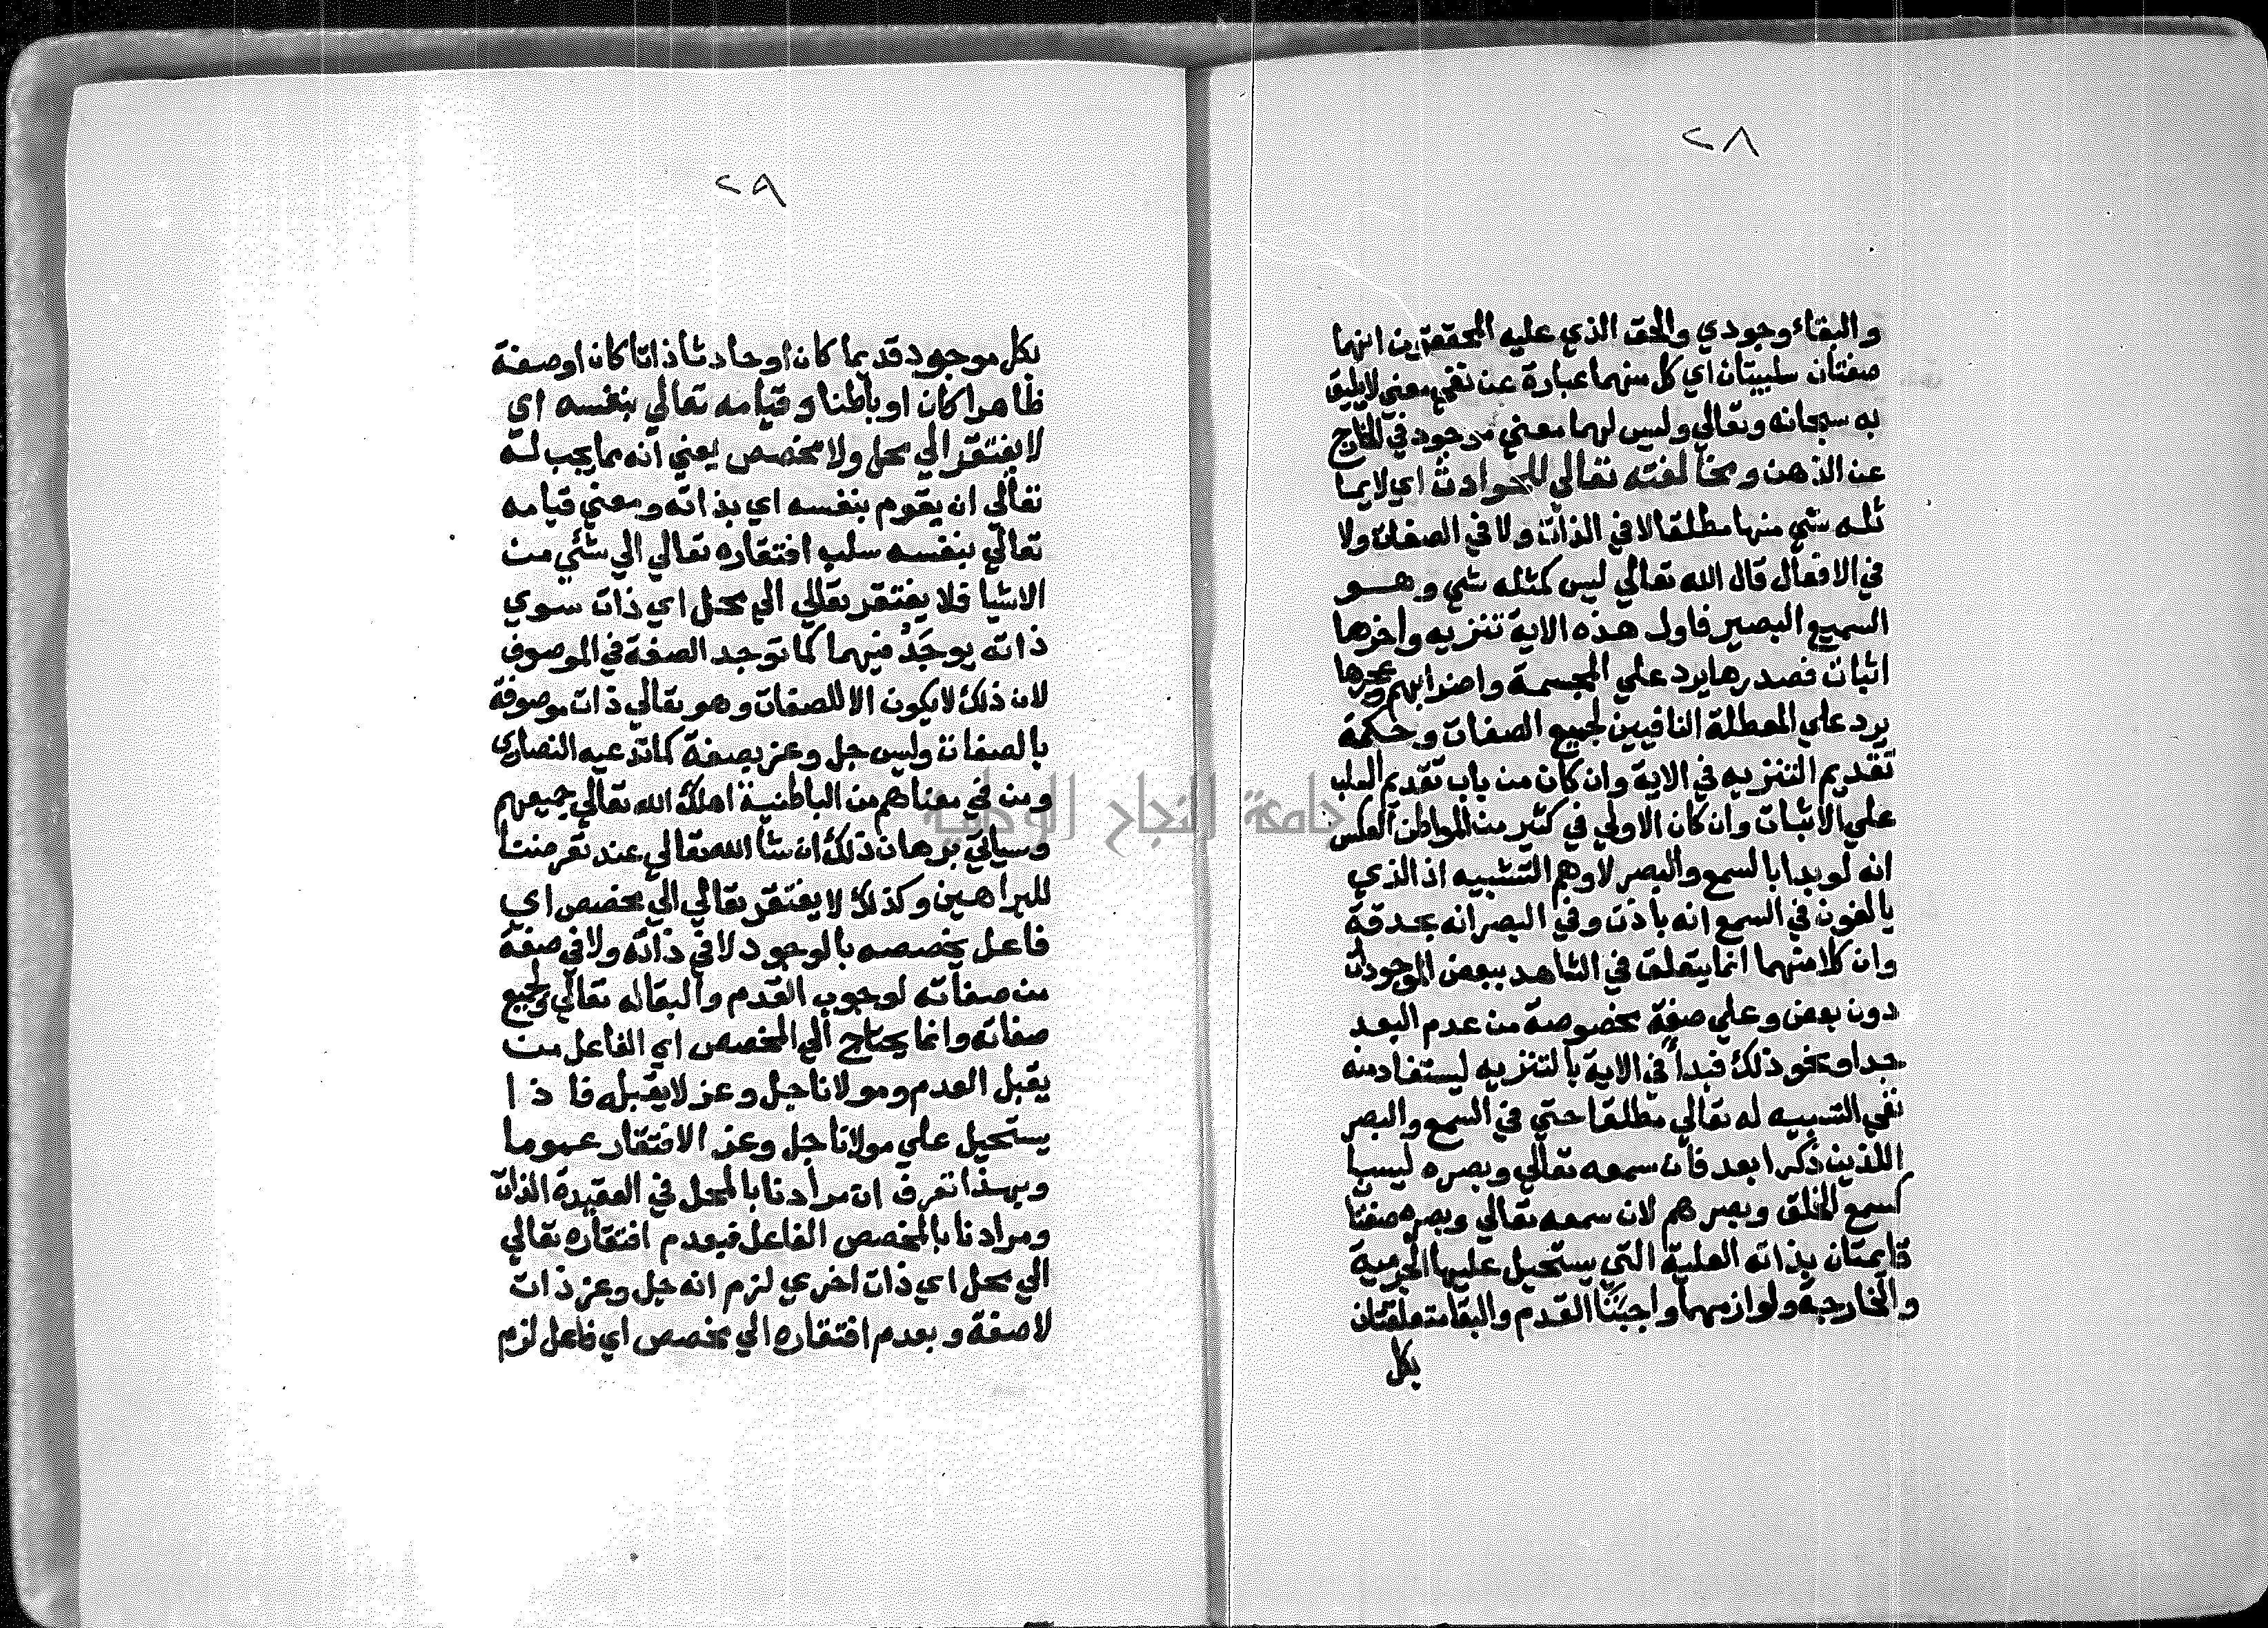 ٢٨
والبقاء وجودي والحق الذي عليه المحققون انهما
صفتان سلبيتان اي كل منهما عبارة عن نفي معني لايليق
به سبحانه وتعالي وليس لهما معني موجود في الخارج
عن الذهن ومخالفته تعالي للحوادث اي لا يما
ثله شي منها مطلقا لا في الذات ولا في الصفات ولا
في الافعال قال الله تعالي ليس كمثله شي وهو
السميع البصير فاول هذه الاية تنزيه واخرها
اثبات فصدرها يرد علي المجسمة واضرابهم وعجزها
يرد علي المعطلة النافيين لجميع الصفات وحكمة
تقديم التنزيه في الاية وان كان من باب تقديم السلب
علي الاثبات وان كان الاولي في كثير من المواطن العكس
انه لو بدا بالسمع والبصر لاوهم التشبيه اذ الذي
يالفون في السمع انه باذن وفي البصر انه بحدقة
وان كلا منهما انما يتعلق في الشاهد ببعض الموجودات
دون بعض وعلي صفة مخصوصة من عدم البعد
جدا ونحو ذلك فبدأ في الاية بالتنزيه ليستفاد منه
نفي التشبيه له تعالي مطلقا حتي في السمع والبصر
اللذين ذكرا بعد فان سمعه تعالي وبصره ليسا
كسمع الخلق وبصرهم لان سمعه تعالي وبصره صفتا
قايمتان بذاته العلية التي يستحيل عليها الجرمية
والخارجة ولوازمهما واجبتا القدم والبقا متعلقتان
بكل
٢٩
بكل موجود قديما كان او حادثا ذاتا كان او صفة
ظاهرا كان او باطنا وقيامه تعالي بنفسه اي
لا يفتقر الي محل ولا مخصص يعني انه مما يجب له
تعالي ان يقوم بنفسه اي بذاته ومعني قيامه
تعالي بنفسه سلب افتقاره تعالي الي شئي من
الاشيا فلا يفتقر تعالي الي محل اي ذات سوي
ذاته يوجد فيهما كما توجد الصفة في الموصوف
لان ذلك لا يكون الا للصفات وهو تعالي ذات موصوفة
بالصفات وليس جل وعز بصفة كما تدعيه النصاري
ومن في معناهم من الباطنية اهلك الله تعالي جميعهم
وسياتي برهان ذلك ان شا الله تعالي عند تعرضنا
للبراهين وكذلك لا يفتقر تعالي الي مخصص اي
فاعل يخصصه بالوجود لا في ذاته ولا في صفة
من صفاته لوجوب القدم والبقا له تعالي ولجميع
صفاته وانما يحتاج الي المخصص اي الفاعل من
يقبل العدم ومولانا جل وعز لا يقبله فاذا
يستحيل علي مولانا جل وعز الافتقار عموما
وبهذا تعرف ان مرادنا بالمحل في العقيدة الذات
ومرادنا بالمخصص الفاعل فبعدم افتقاره تعالي
الي محل اي ذات اخري لزم انه جل وعز ذات
لا صفة وبعدم افتقاره الي مخصص اي فاعل لزم
جامعة النجاح الوطنية